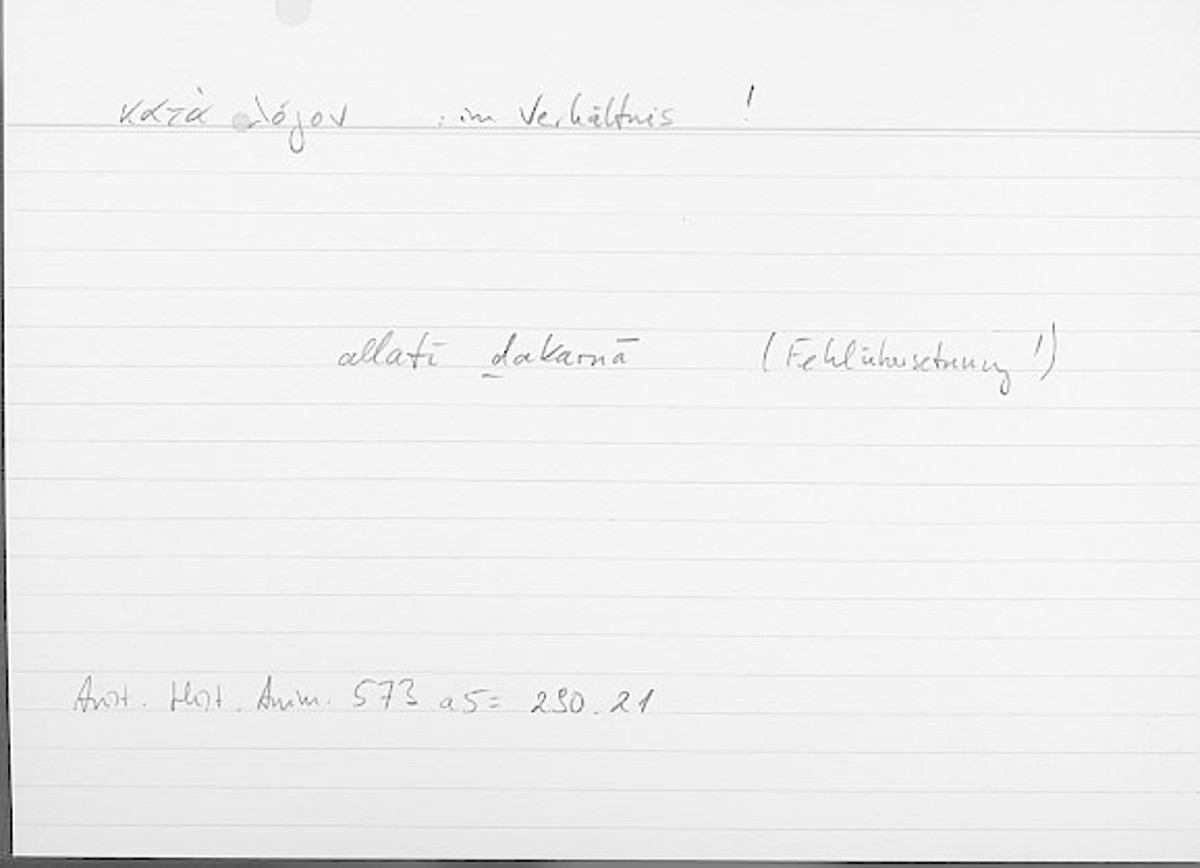 κατὰ λόγον : im Verhältnis !
allatī ḏakarnā (Fehlübersetzung !)
Arist. Hist. Anim. 573 a5 = 290.21